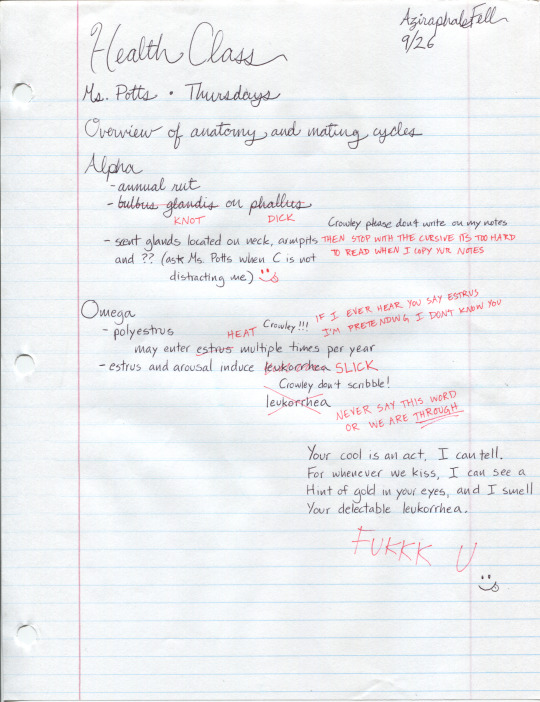 Aziraphale Fell
9/26
Health Class
Ms. Potts • Thursdays
Overview of anatomy and mating cycles
Alpha
- annual rut
- bulbus glandis on phallus
KNOT DICK
Crowley please don't write on my notes
- scent glands located on neck, armpits THEN STOP WITH THE CURSIVE ITS TOO HARD
and ?? (ask Ms. Potts when C is not TO READ WHEN I COPY YUR NOTES
distracting me)
Omega
IF I EVER HEAR YOU SAY ESTRUS
- polyestrus HEAT Crowley!!! I'M PRETENDING I DON'T KNOW YOU
may enter estrus multiple times per year
- estrus and arousal induce leukorrhea SLICK
Crowley don't scribble!
leukorrhea NEVER SAY THIS WORD
OR WE ARE THROUGH
Your cool is an act, I can tell.
For whenever we kiss, I can see a
Hint of gold in your eyes, and I smell
Your delectable leukorrhea.
FUKKK U